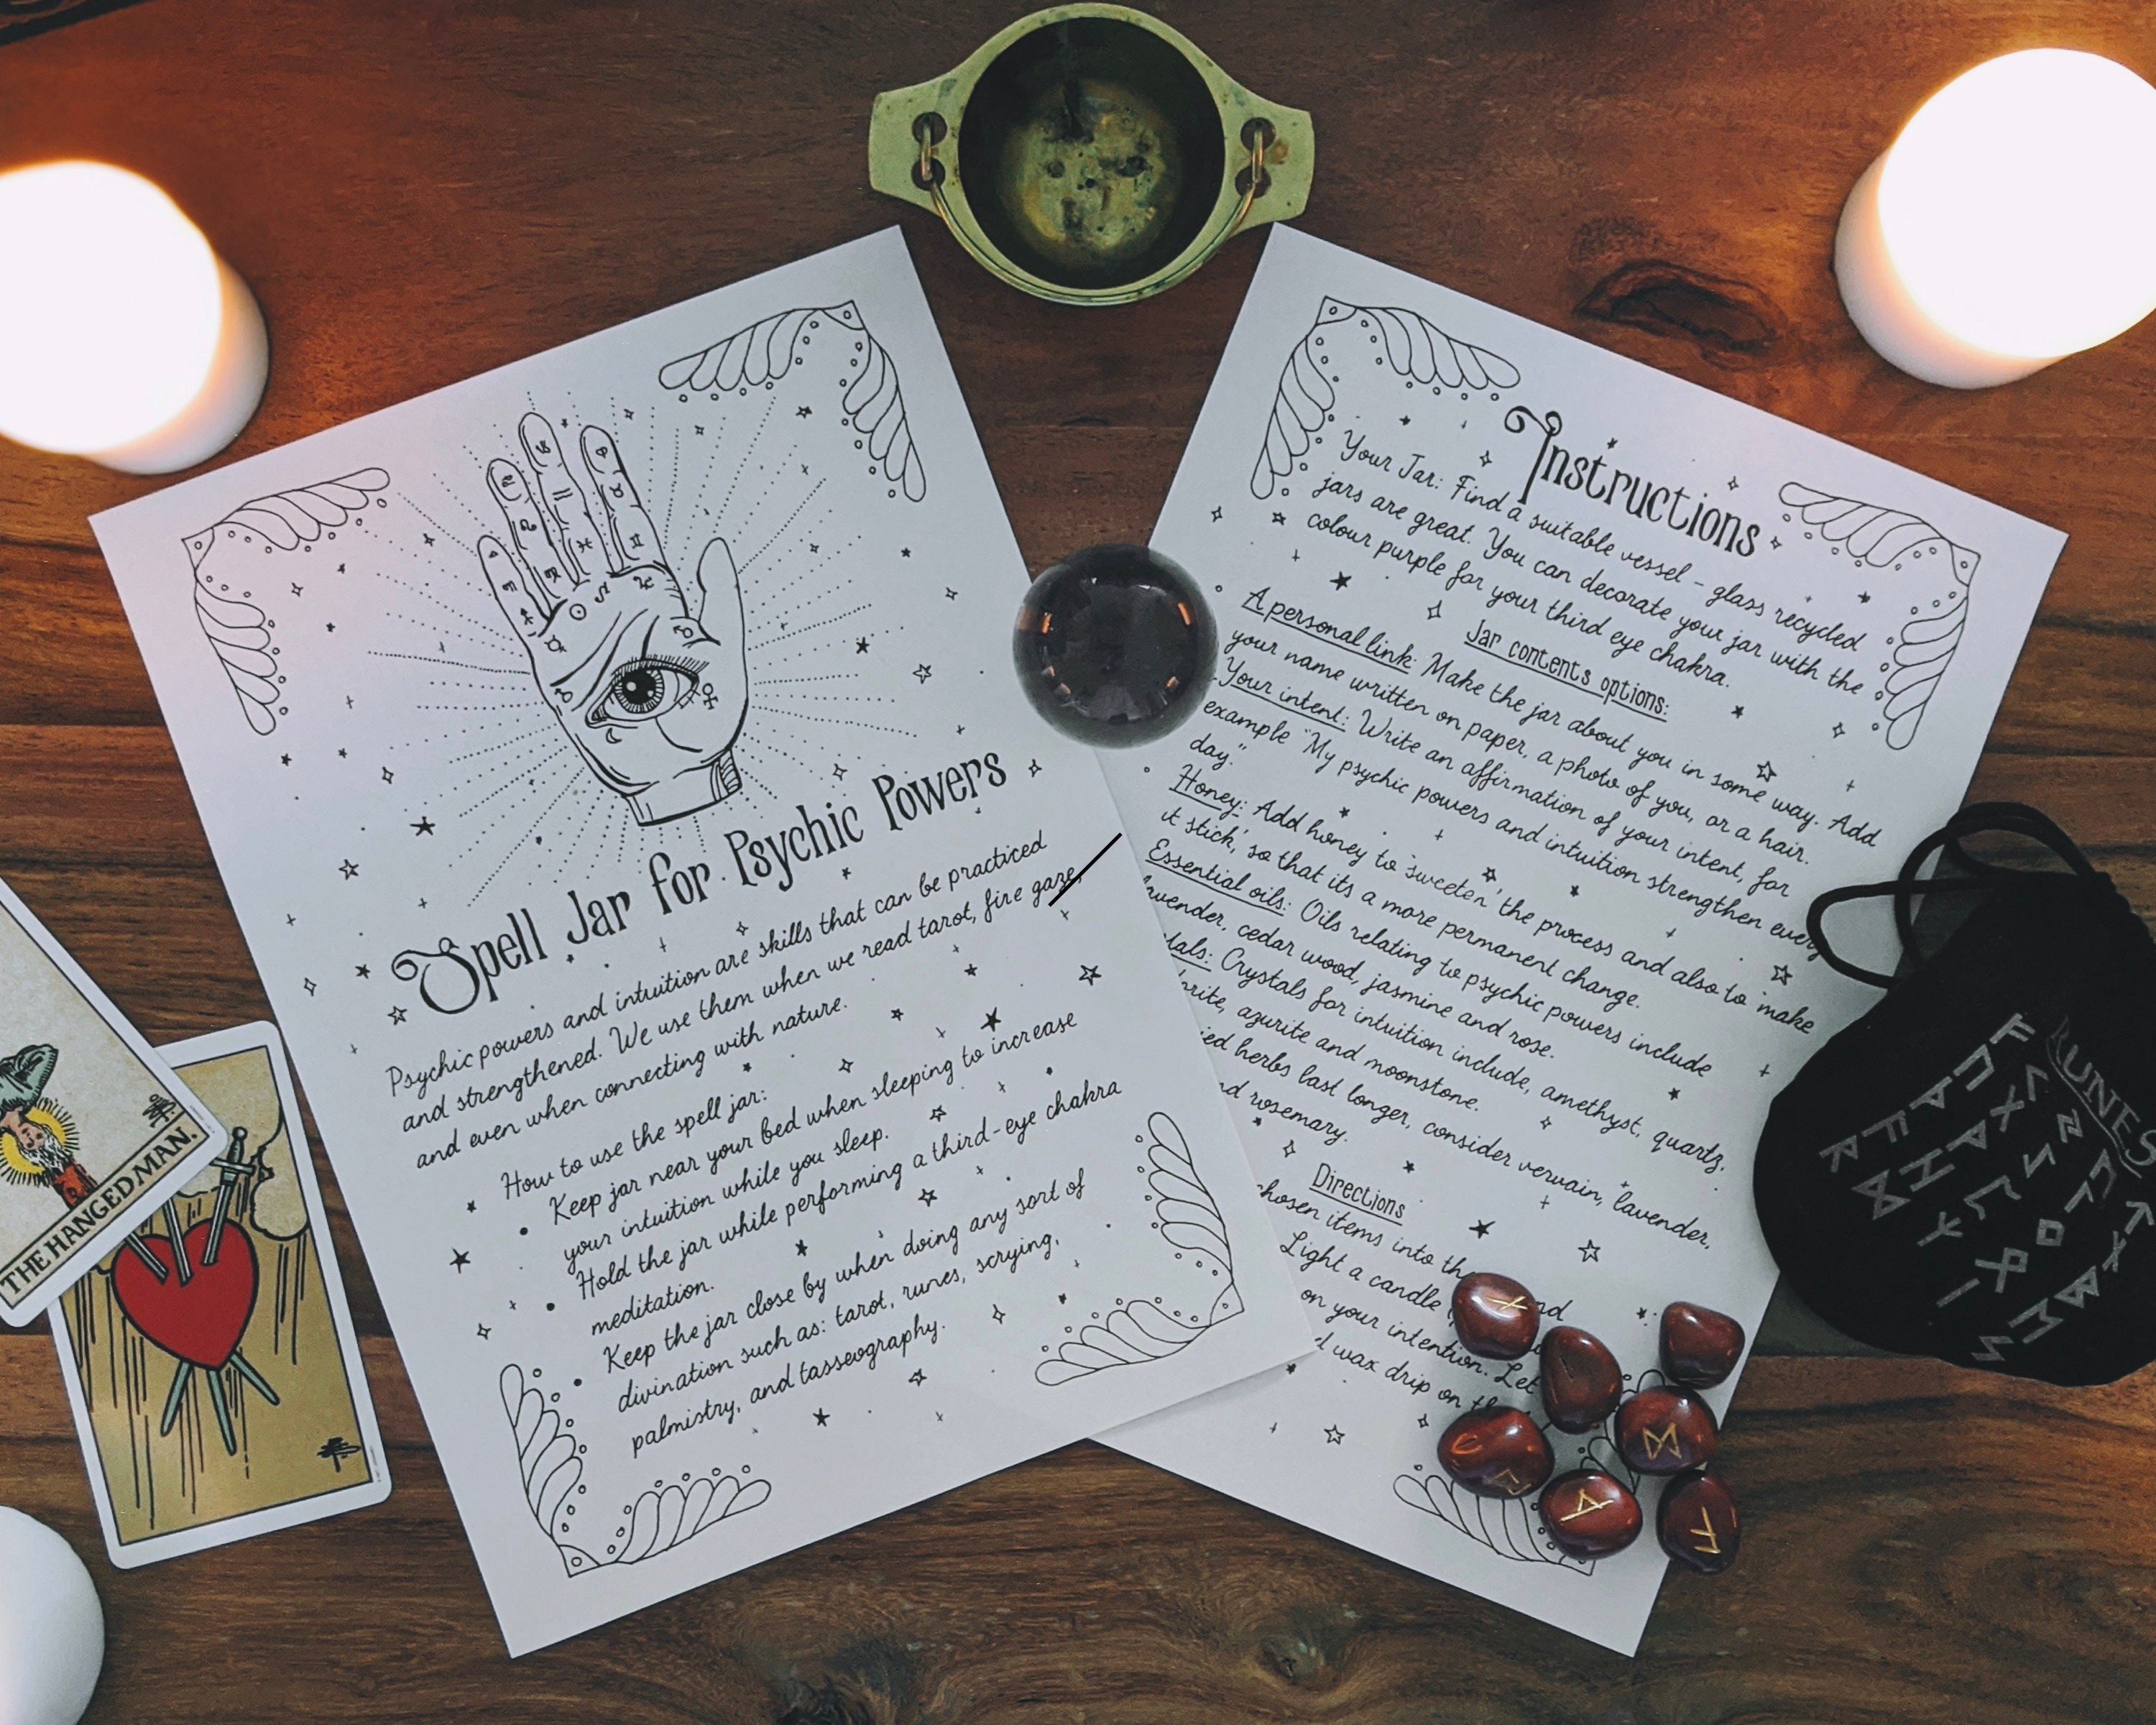 Spell Jar for Psychic Powers
Psychic powers and intuition are skills that can be practiced
and strengthened. We use them when we read tarot, fire gaze,
and even when connecting with nature.
How to use the spell jar:
• Keep jar near your bed when sleeping to increase
your intuition while you sleep.
• Hold the jar while performing a third-eye chakra
meditation.
• Keep the jar close by when doing any sort of
divination such as: tarot, runes, scrying,
palmistry, and tasseography.
Instructions
Your Jar: Find a suitable vessel - glass recycled
jars are great. You can decorate your jar with the
colour purple for your third eye chakra.
Jar contents options:
A personal link: Make the jar about you in some way. Add
your name written on paper, a photo of you, or a hair.
Your intent: Write an affirmation of your intent, for
example "My psychic powers and intuition strengthen every
day."
Honey: Add honey to 'sweeten' the process and also to 'make
it stick', so that its a more permanent change.
Essential oils: Oils relating to psychic powers include
lavender, cedar wood, jasmine and rose.
Crystals for intuition include, amethyst, quartz,
azurite and moonstone.
herbs last longer, consider vervain, lavender,
rosemary.
Directions
chosen items into
Light a candle
on your intention. Let
wax drip on
THE HANGED MAN.
RUNES